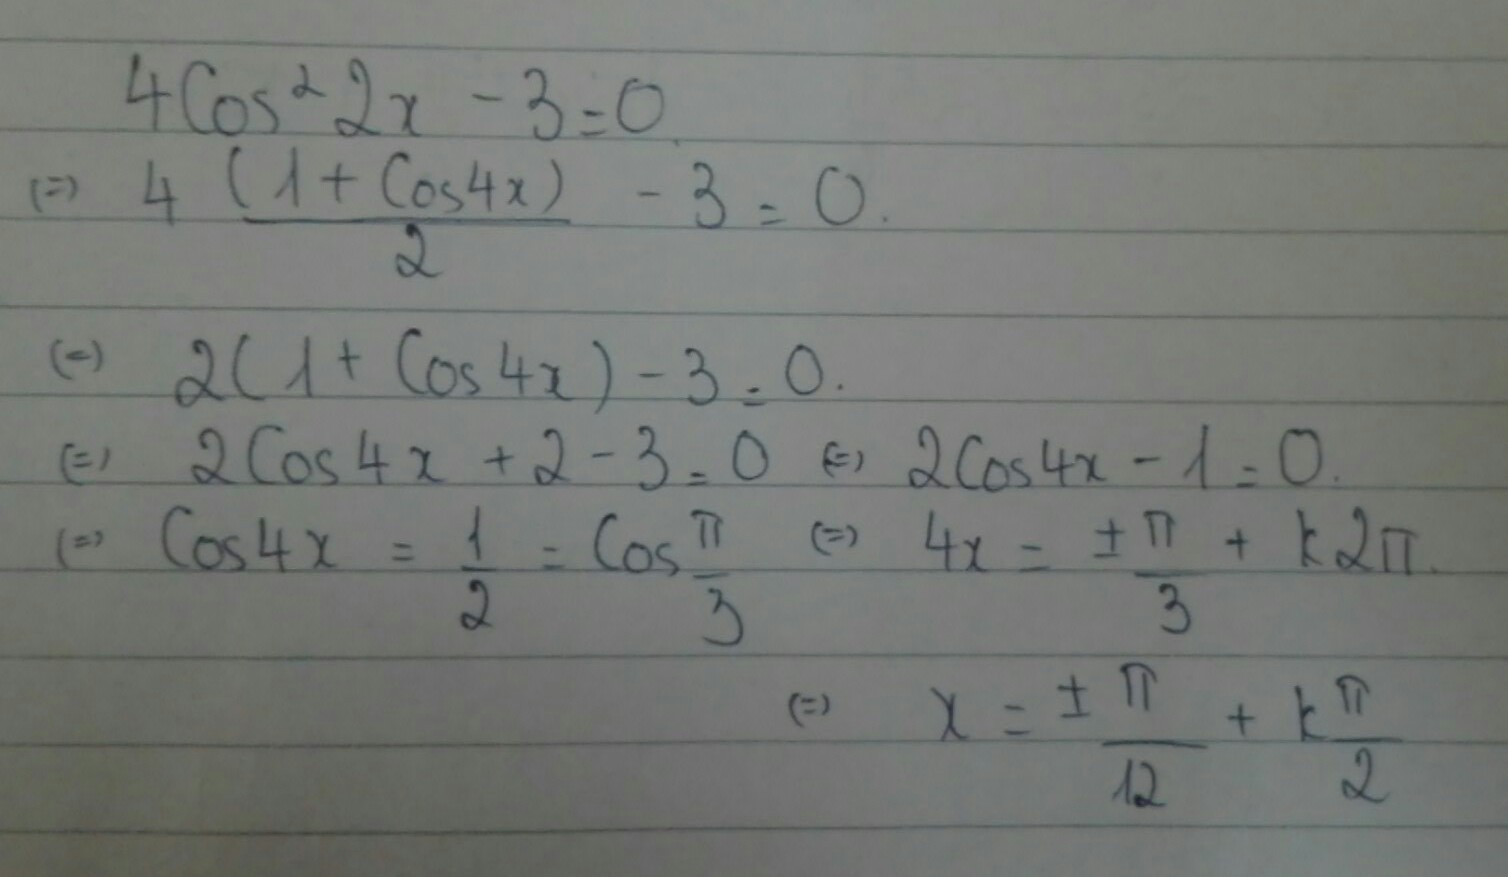 4Cos²2x - 3 = 0.
(=) 4 (1 + Cos4x)/2 - 3 = 0.
(=) 2(1 + Cos4x) - 3 = 0.
(=) 2Cos4x + 2 - 3 = 0 (=) 2Cos4x - 1 = 0.
(=) Cos4x = 1/2 = Cos π/3 (=) 4x = ± π/3 + k2π.
(=) x = ± π/12 + k π/2